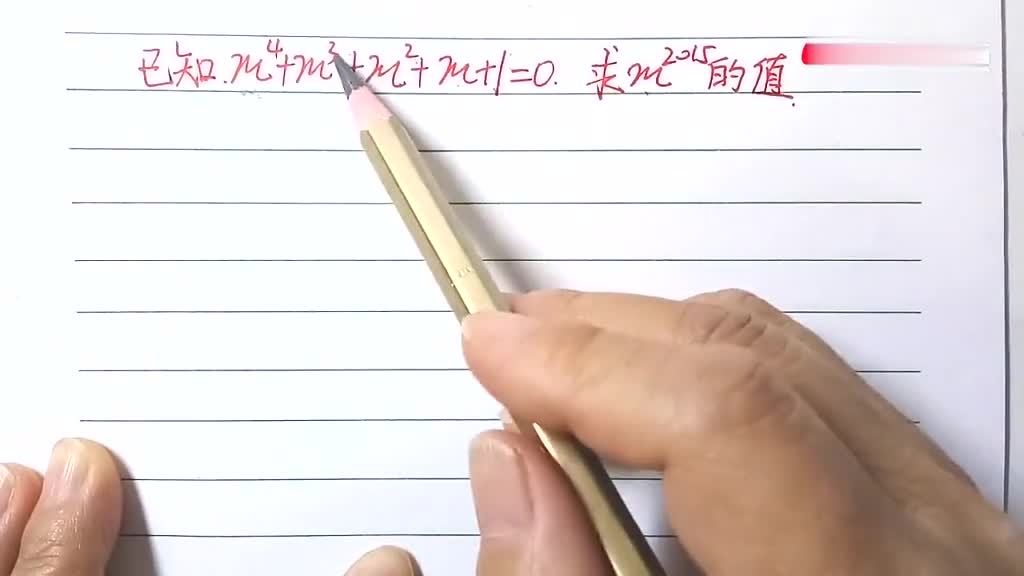 已知 m⁴+m³+m²+m+1=0. 求 m²⁰¹⁵的值.